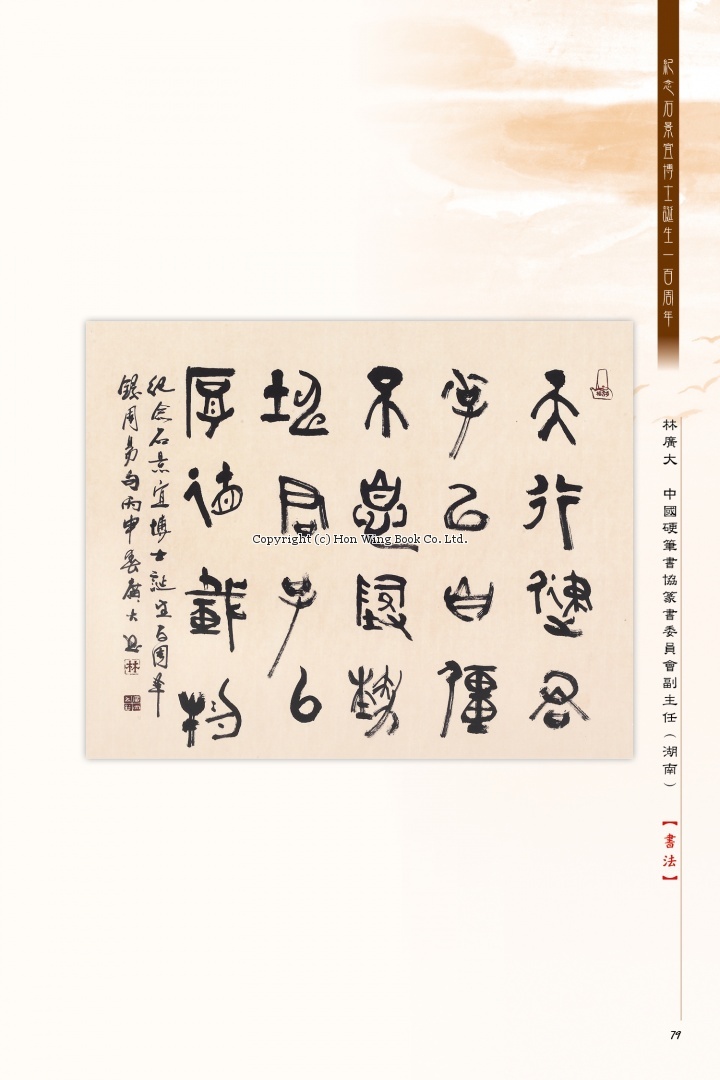 紀念石景宜博士誕生一百周年
林廣大 中國硬筆書協篆書委員會副主任（湖南）
【書法】
天行健君
子以自彊
不息因勢
坤君子以
厚德載物
紀念石景宜博士誕生百周年
錄周易句丙申
廣大
林
Copyright (c) Hon Wing Book Co. Ltd.
79